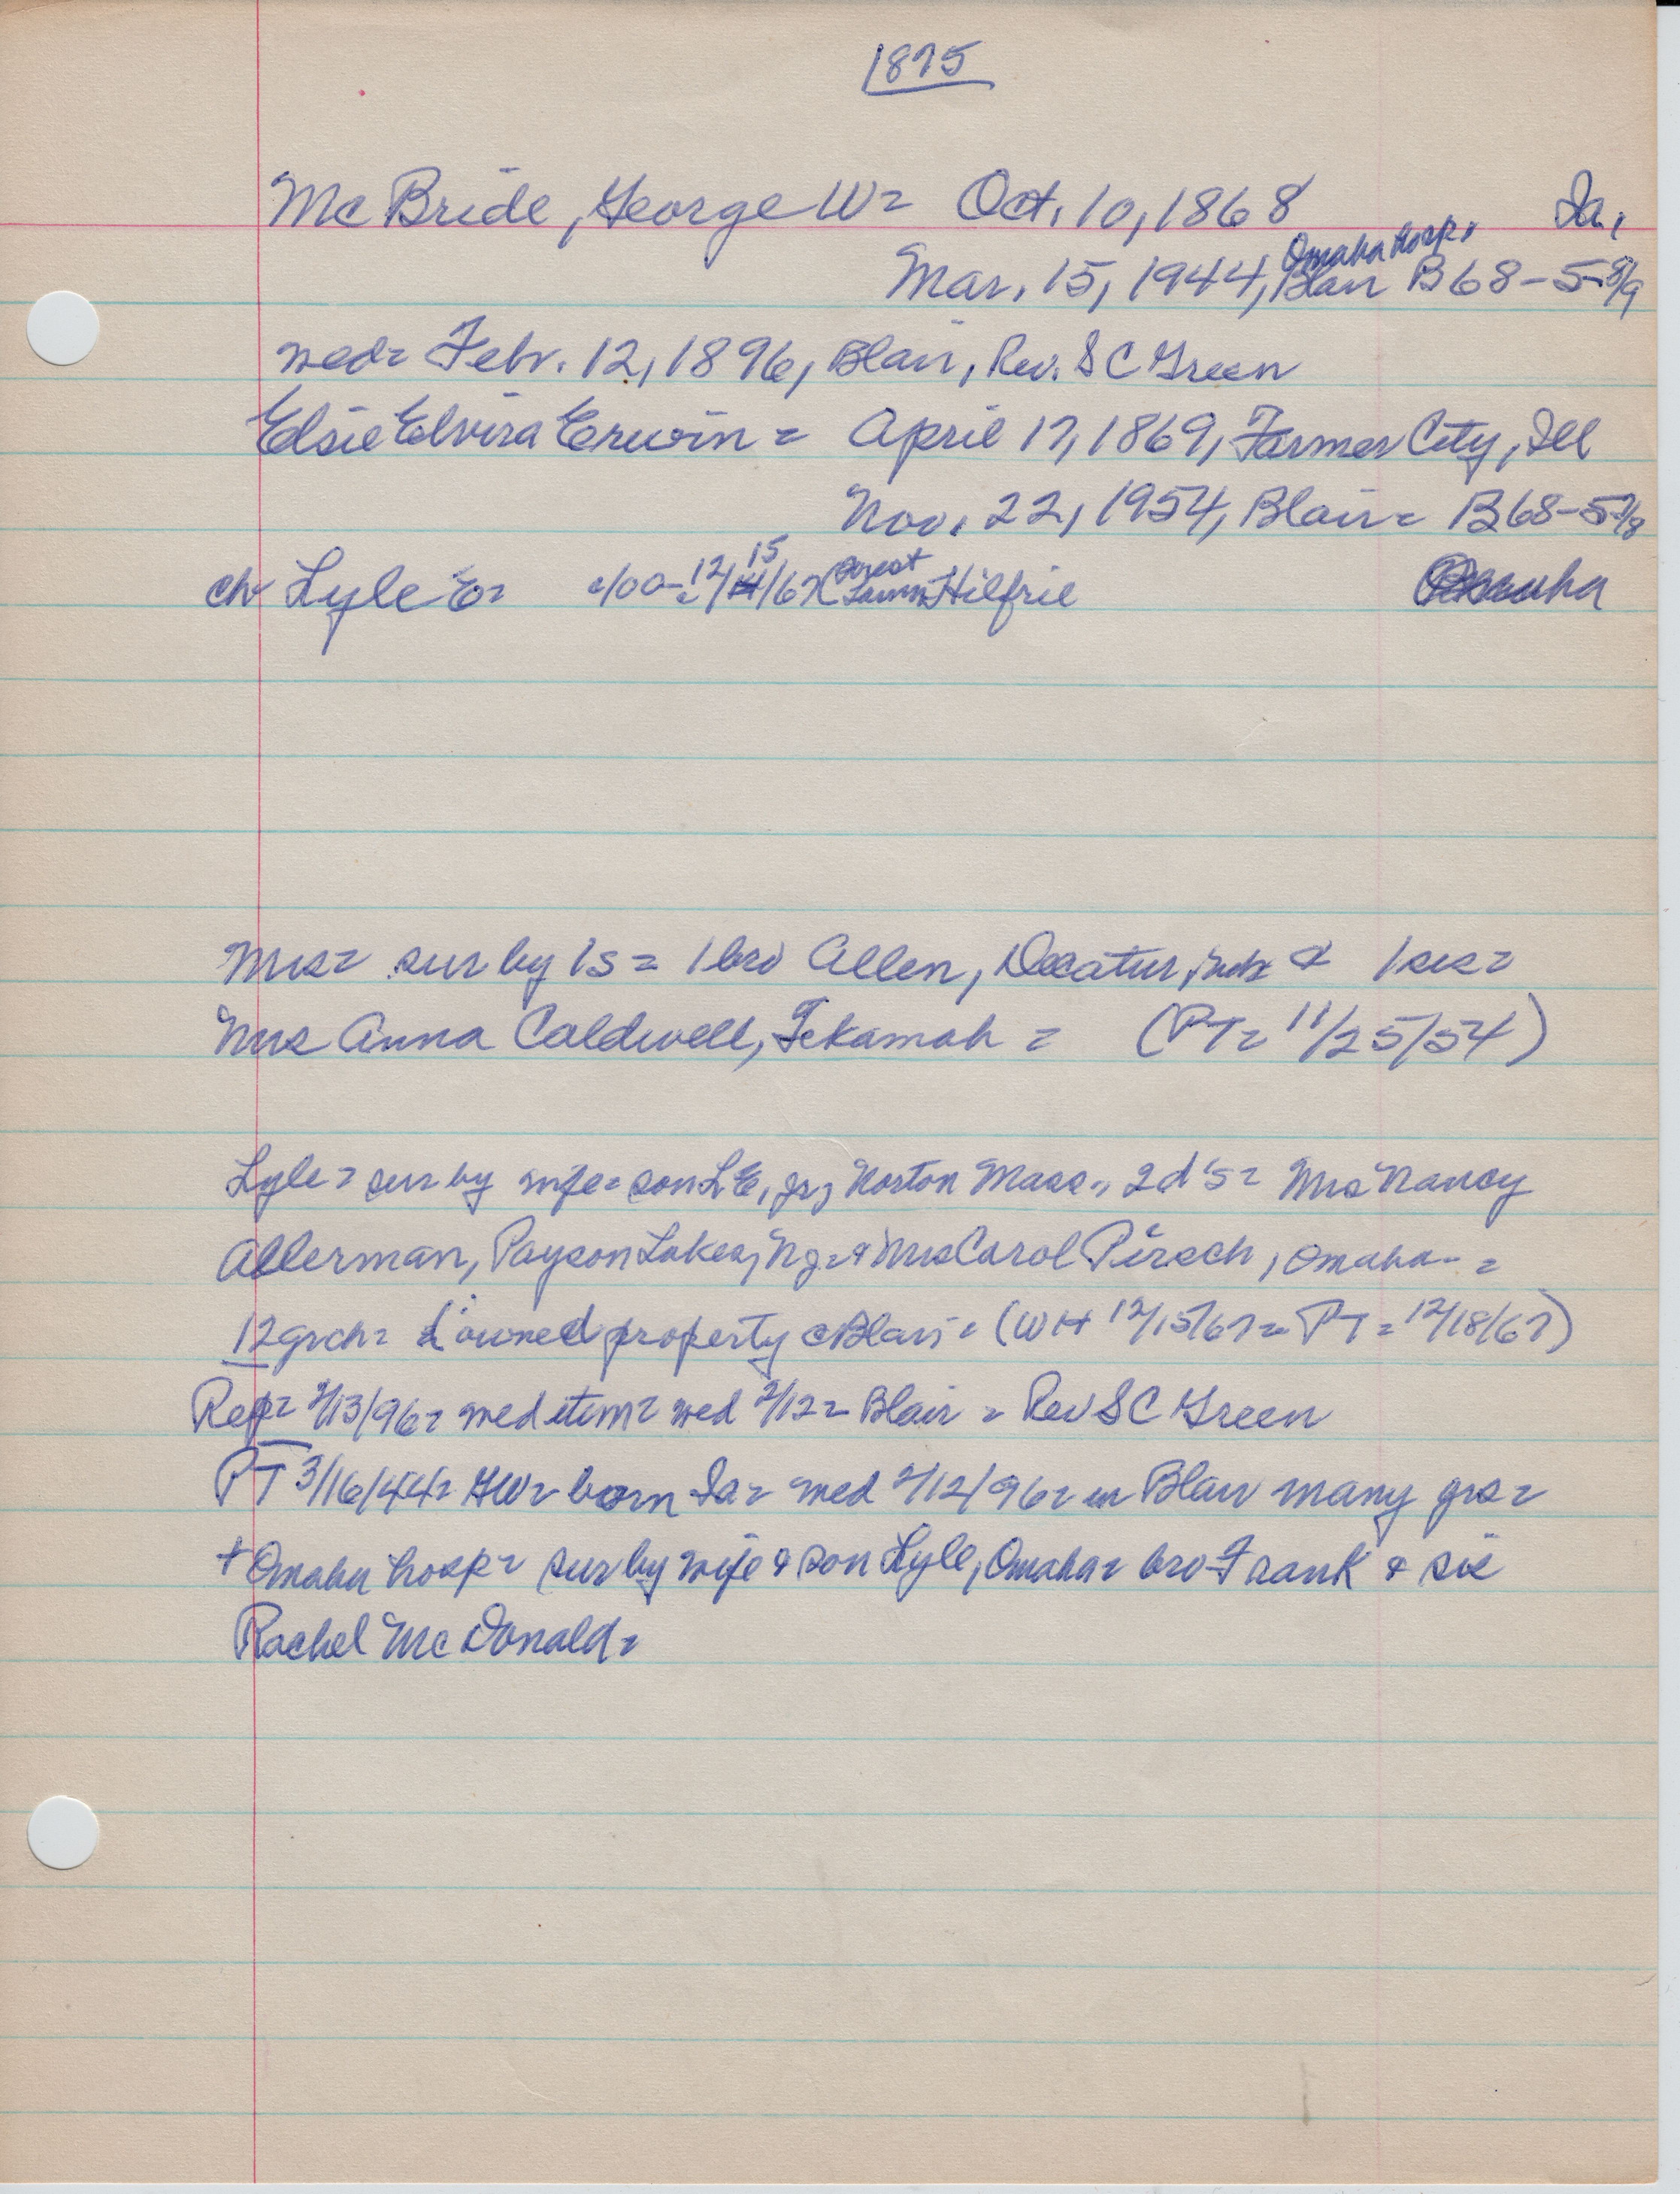 1875
McBride, George W= Oct. 10, 1868 Ia.
Omaha hosp.
Mar. 15, 1944, Blair B68-5-8/9
wed= Febr. 12, 1896, Blair, Rev. S C Green
Elsie Elvira Erwin = April 17, 1869, Farmer City, Ill
Nov. 22, 1954, Blair= B68-5-7/8
15 Forest
ch Lyle E= c/00-12/14/67 Lawn Hilfrie Omaha
Mrs= sur by 1s = 1 bro Allen, Decatur, & 1 sis=
Mrs Anna Caldwell, Tekamah = (PT= 11/25/54)
Lyle= sur by wife= son L E, jr, Norton Mass., 2d's= Mrs Nancy
Allerman, Payson Lakes, NJ= & Mrs Carol Pirsch, Omaha-=
12 grch= L owned property c Blair= (WH 12/15/67= PT= 12/18/67)
Rep= 2/13/96= wed item= wed 2/12= Blair = Rev S C Green
PT 3/16/44= GW= born Ia= wed 2/12/96= in Blair many yrs=
+ Omaha hosp= sur by wife & son Lyle, Omaha= bro Frank & sis
Rachel McDonald=